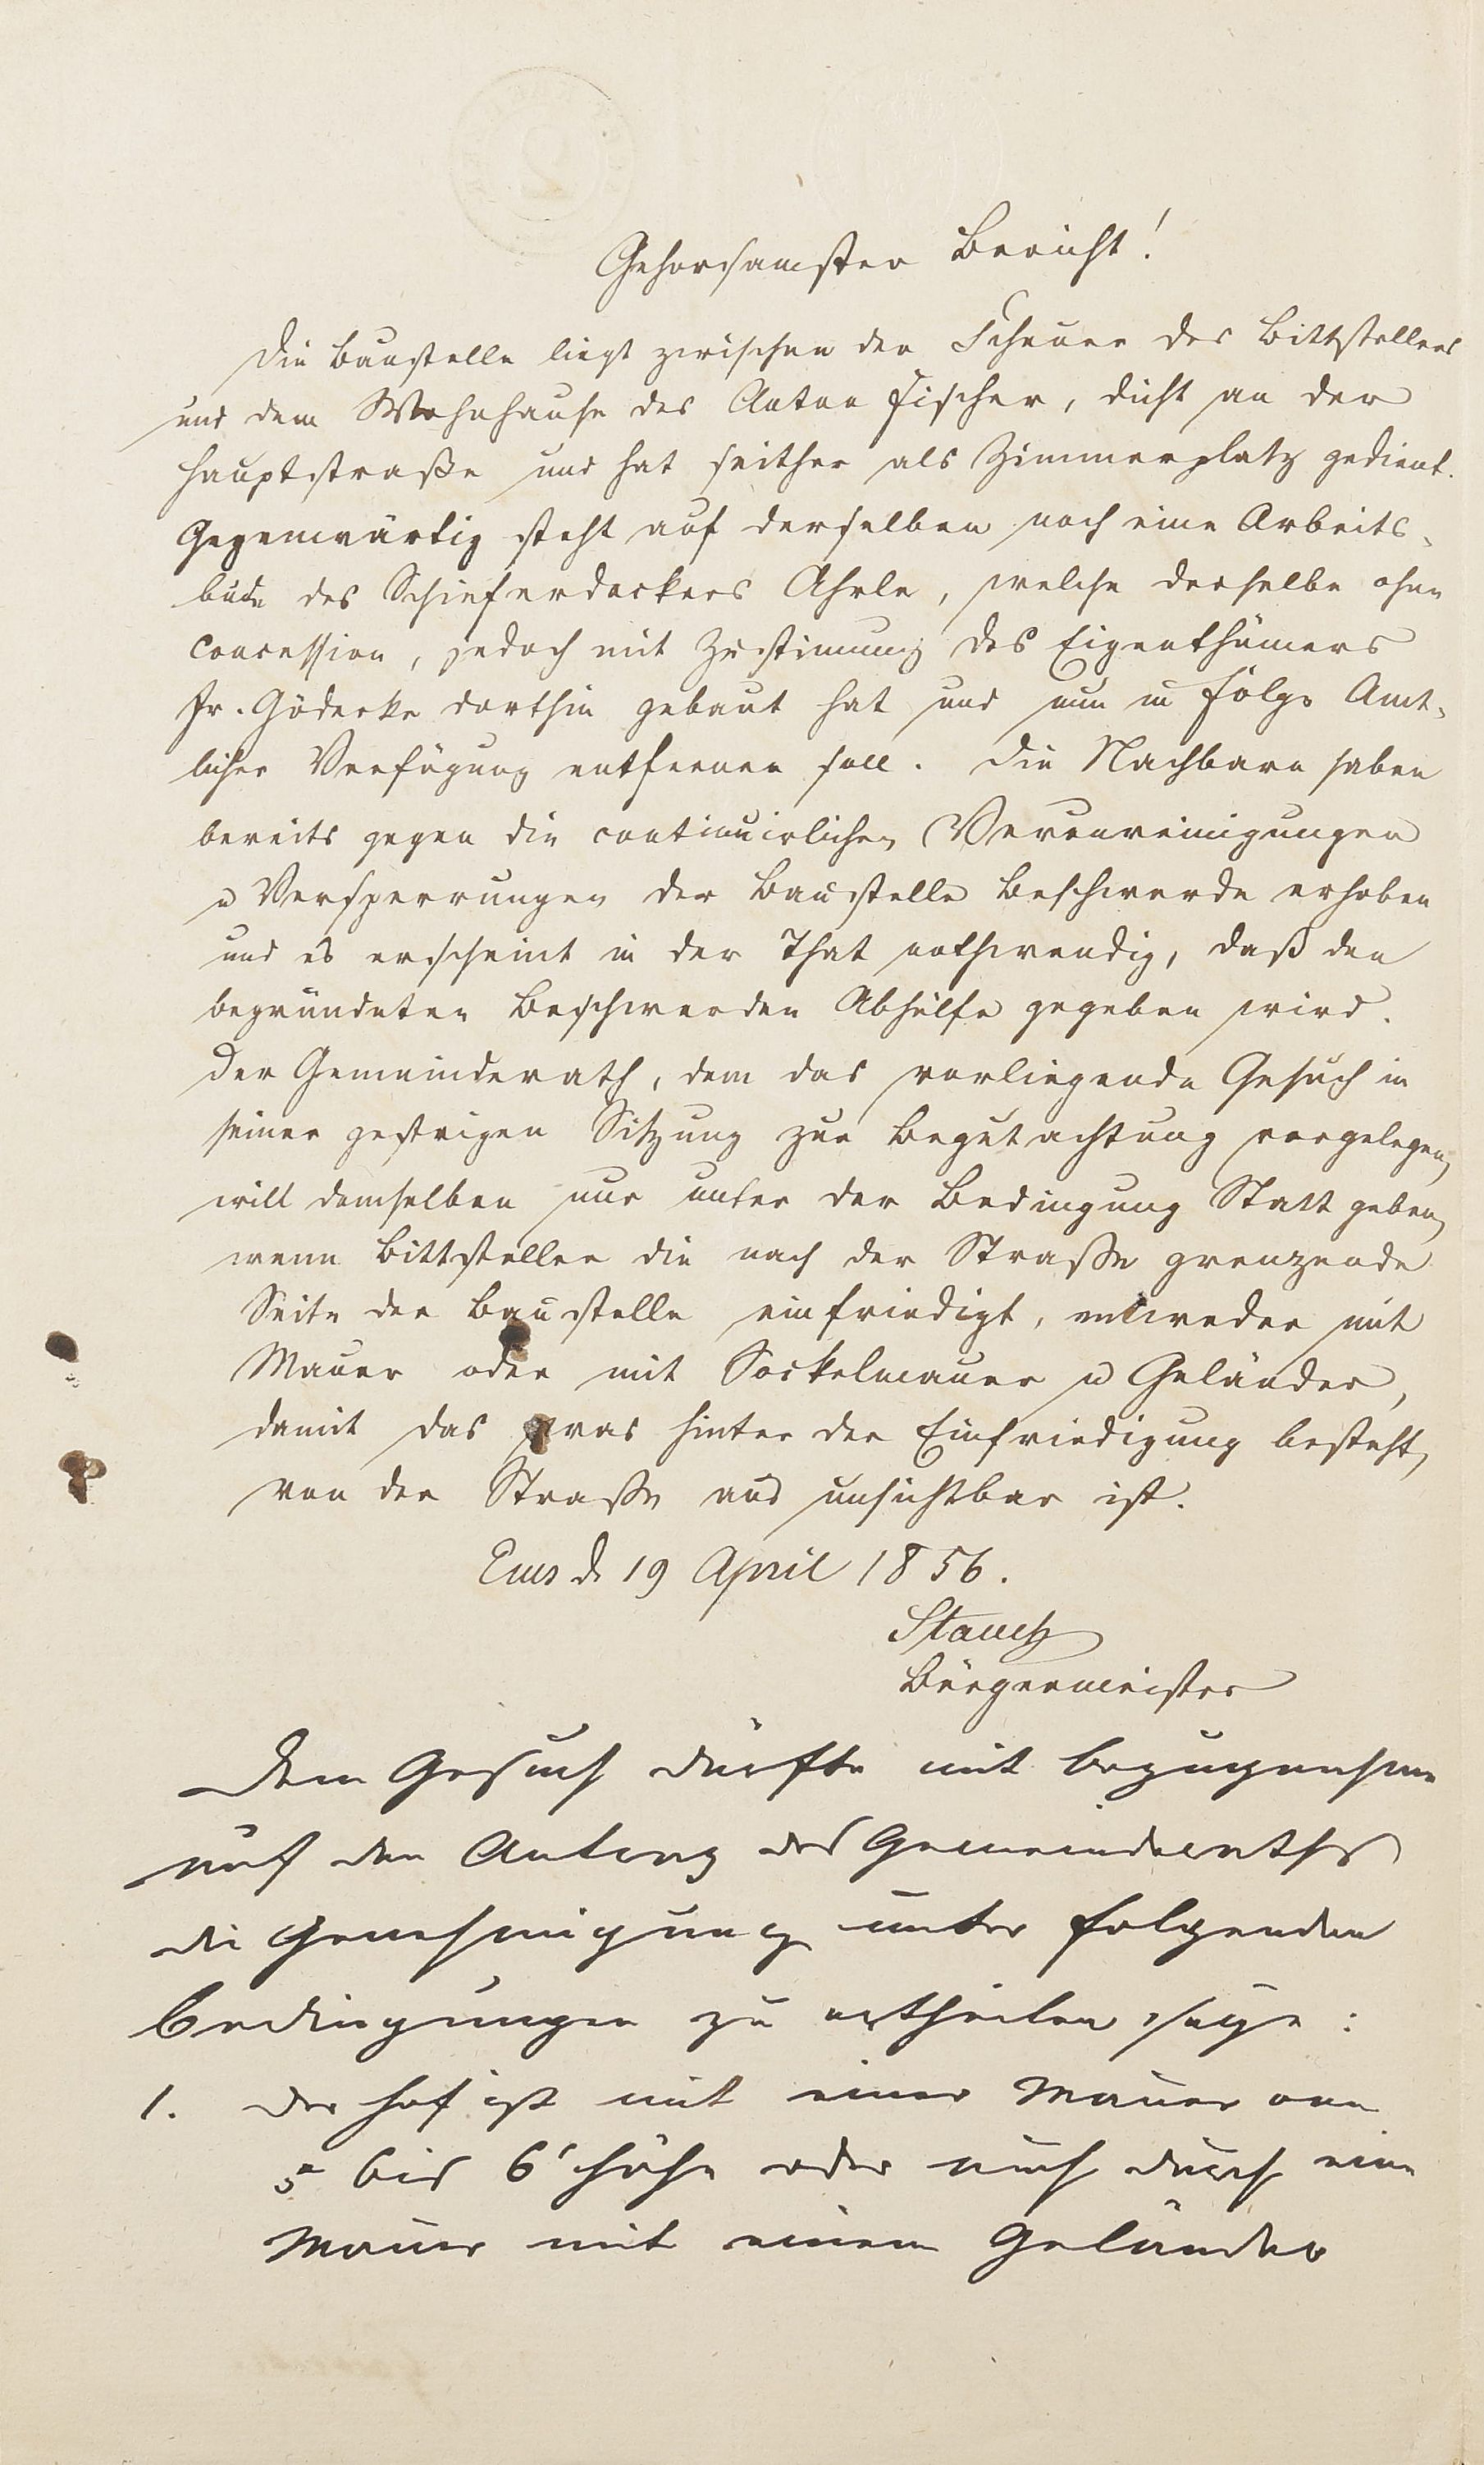 Gehorsamster Bericht!
Die Baustelle liegt zwischen der Scheuer des Bittstellers
und dem Wohnhause des Anton Fischer, dicht an der
Hauptstraße und hat seither als Zimmerplatz gedient.
Gegenwärtig steht auf derselben noch eine Arbeits-
bude des Schieferdeckers Ahrle, welche derselbe ohne
Concession, jedoch mit Zustimung des Eigenthümers
Fr. Gödecke dorthin gebaut hat und nun in Folge Amt-
licher Verfügung entfernen soll. Die Nachbarn haben
bereits gegen die continuirlichen Verunreinigungen
u Versperrungen der Baustelle Beschwerde erhoben
und es erscheint in der That nothwendig, daß den
begründeten Beschwerden Abhülfe gegeben wird.
Der Gemeinderath, dem das vorliegende Gesuch in
seiner gestrigen Sitzung zur Begutachtung vorgelegen,
will demselben nur unter der Bedingung Statt geben,
wenn Bittsteller die nach der Straße grenzende
Seite der Baustelle einfriedigt, entweder mit
Mauer oder mit Sockelmauer u Geländer,
damit das was hinter der Einfriedigung besteht,
von der Straße aus unsichtbar ist.
Ems d. 19 April 1856.
Bürgermeister
Dem Gesuch dürfte mit Bezugnahme
auf den Antrag des Gemeinderaths
die Genehmigung unter folgenden
Bedingungen zu ertheilen seye:
1. Der Hof ist mit einer Mauer von
5 bis 6' Höhe oder auch durch eine
Mauer mit einem Geländer